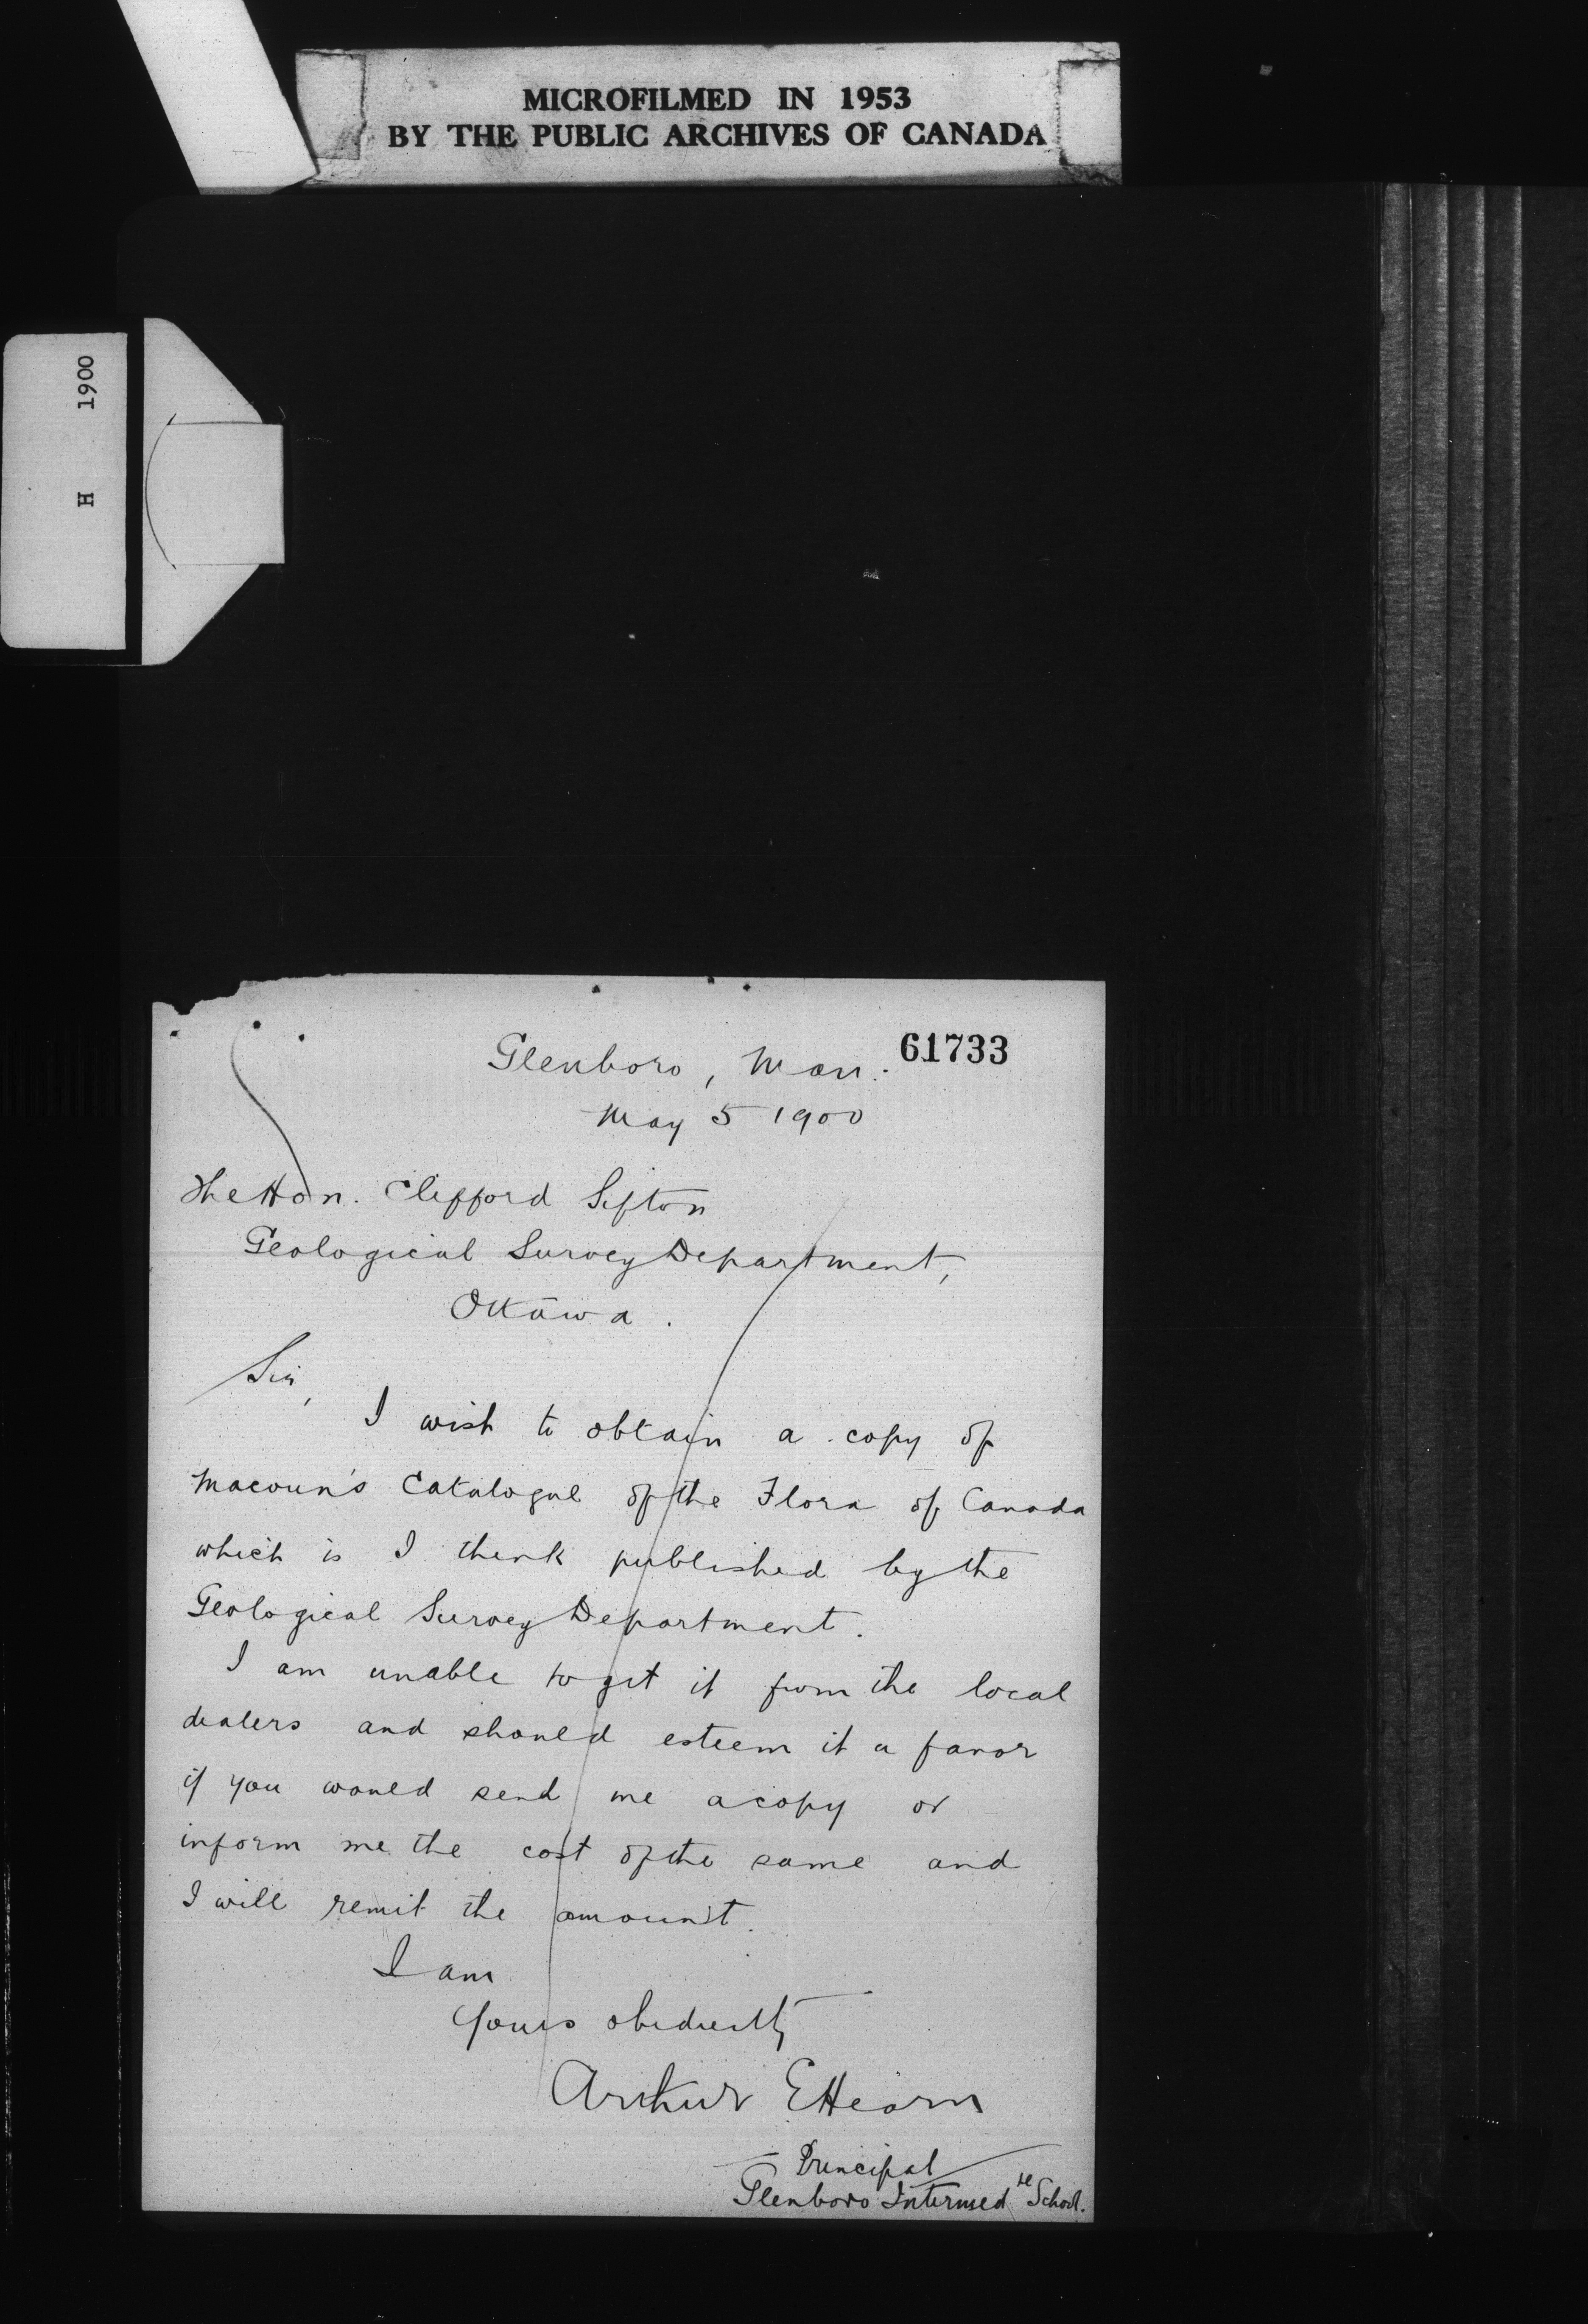 MICROFILMED IN 1953
BY THE PUBLIC ARCHIVES OF CANADA
H 1900
61733
Glenboro, Man.
May 5 1900
The Hon. Clifford Sifton
Geological Survey Department,
Ottawa.
Sir,
I wish to obtain a copy of
Macoun's Catalogue of the Flora of Canada
which is I think published by the
Geological Survey Department.
I am unable to get it from the local
dealers and should esteem it a favor
if you would send me a copy or
inform me the cost of the same and
I will remit the amount.
I am
Yours obediently
Arthur E Hearn
Principal
Glenboro Intermed te School.